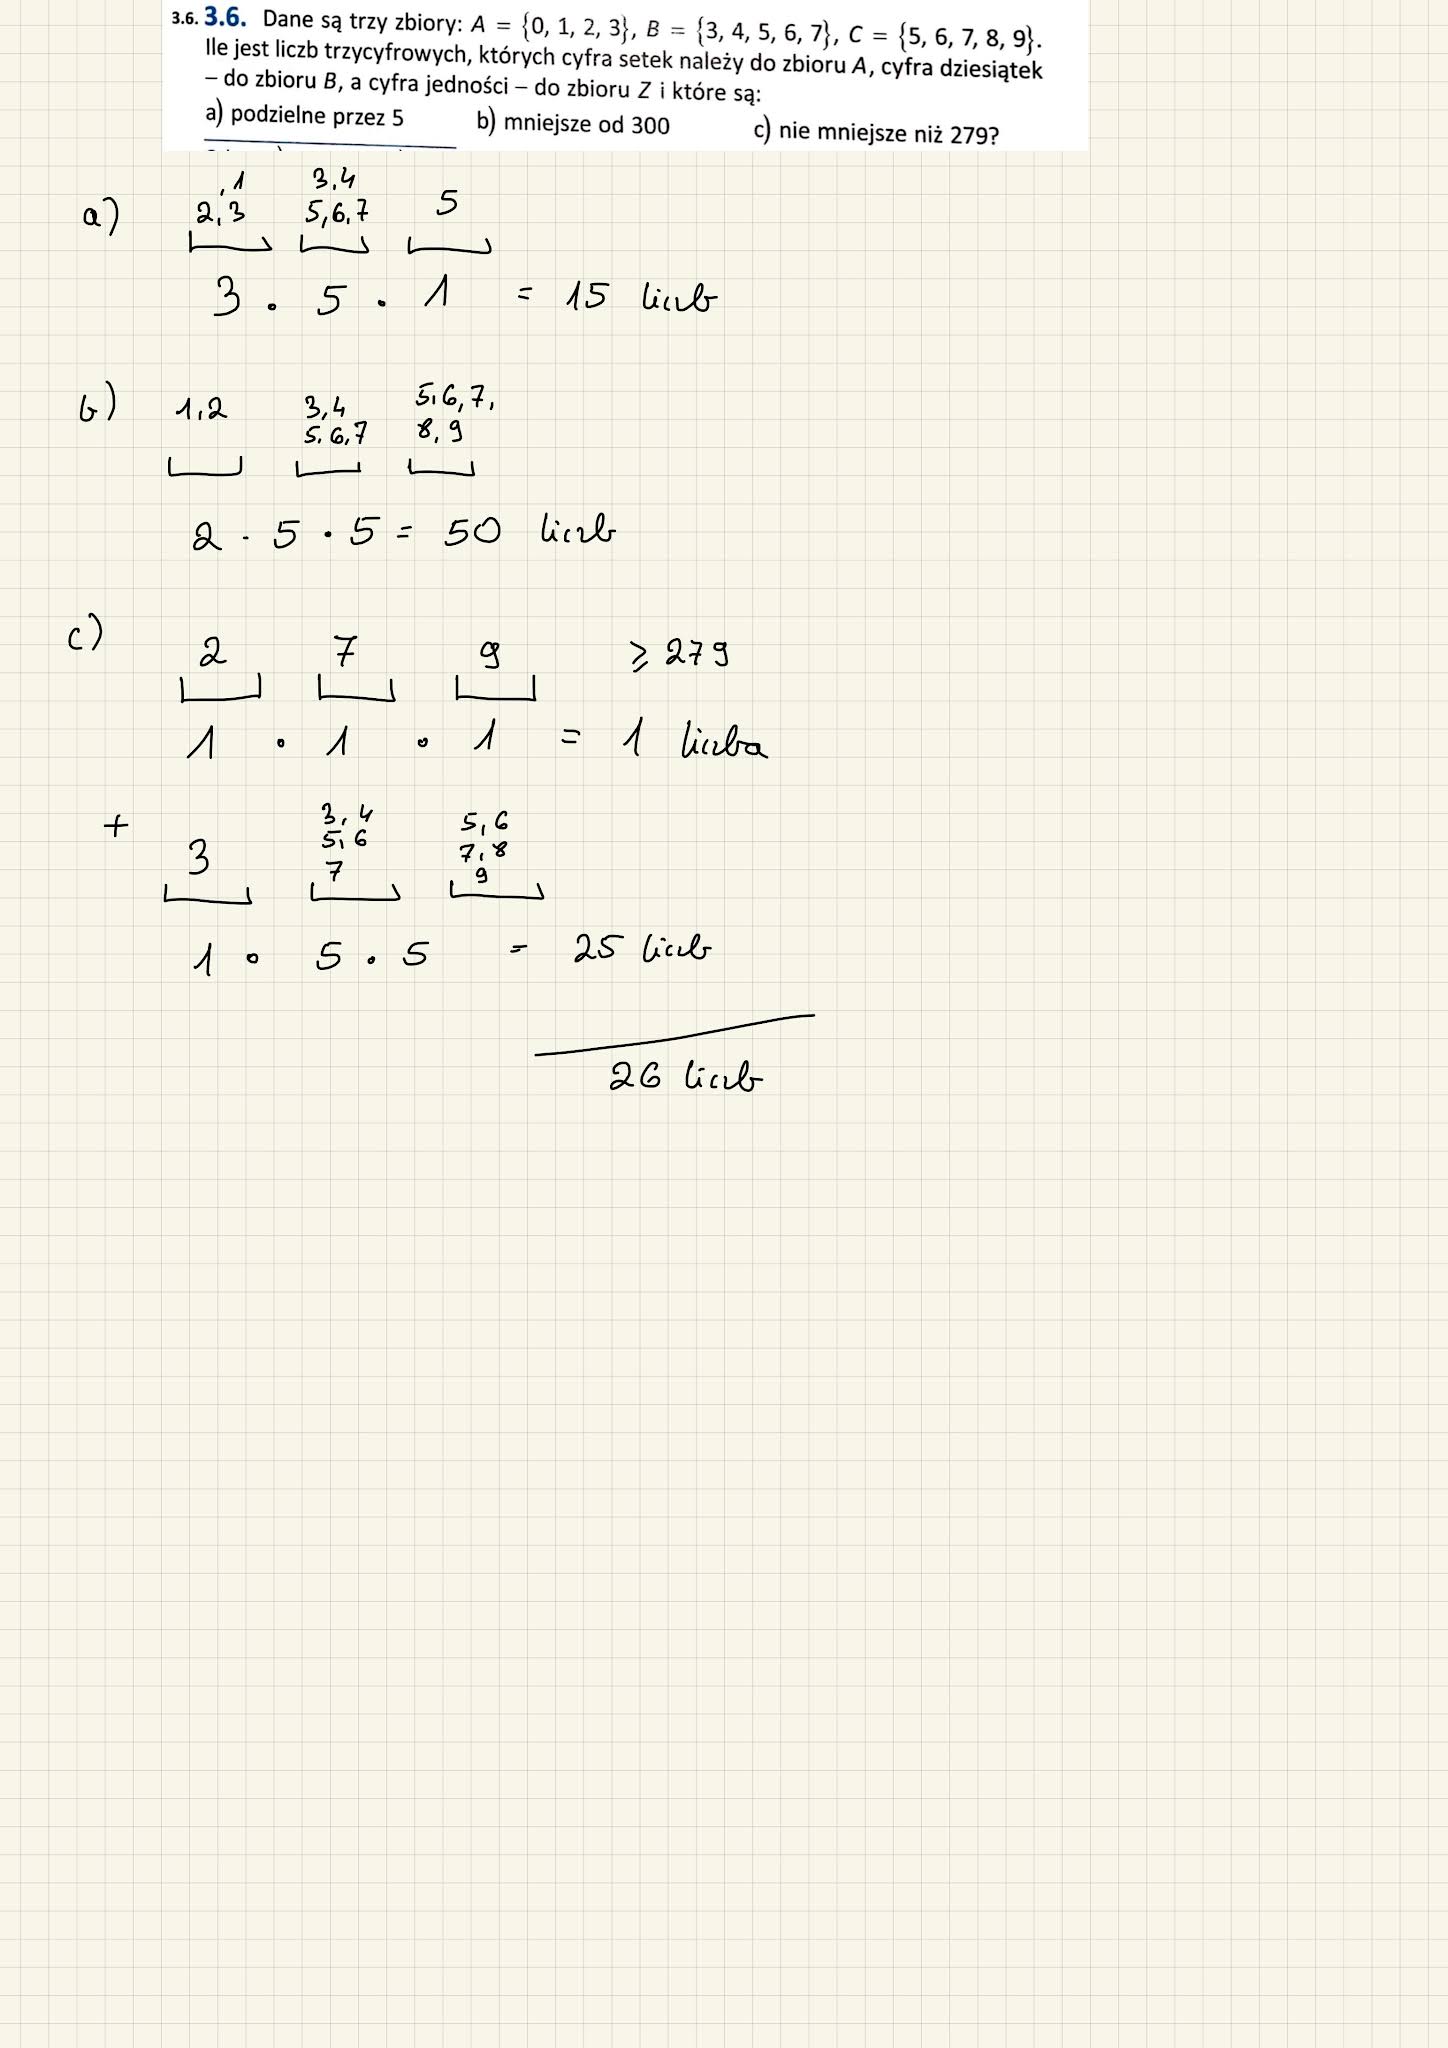 3.6. 3.6. Dane są trzy zbiory: A = {0, 1, 2, 3}, B = {3, 4, 5, 6, 7}, C = {5, 6, 7, 8, 9}.
Ile jest liczb trzycyfrowych, których cyfra setek należy do zbioru A, cyfra dziesiątek
– do zbioru B, a cyfra jedności – do zbioru Z i które są:
a) podzielne przez 5 b) mniejsze od 300 c) nie mniejsze niż 279?
, 1 3,4
a) 2,3 5,6,7 5
3 . 5 . 1 = 15 liczb
5,6,7,
b) 1,2 3,4 8,9
5,6,7
2 · 5 · 5 = 50 liczb
c) 2 7 9 ⩾ 279
1 · 1 · 1 = 1 liczba
3,4 5,6
+ 3 5,6 7,8
7 9
1 · 5 · 5 = 25 liczb
26 liczb